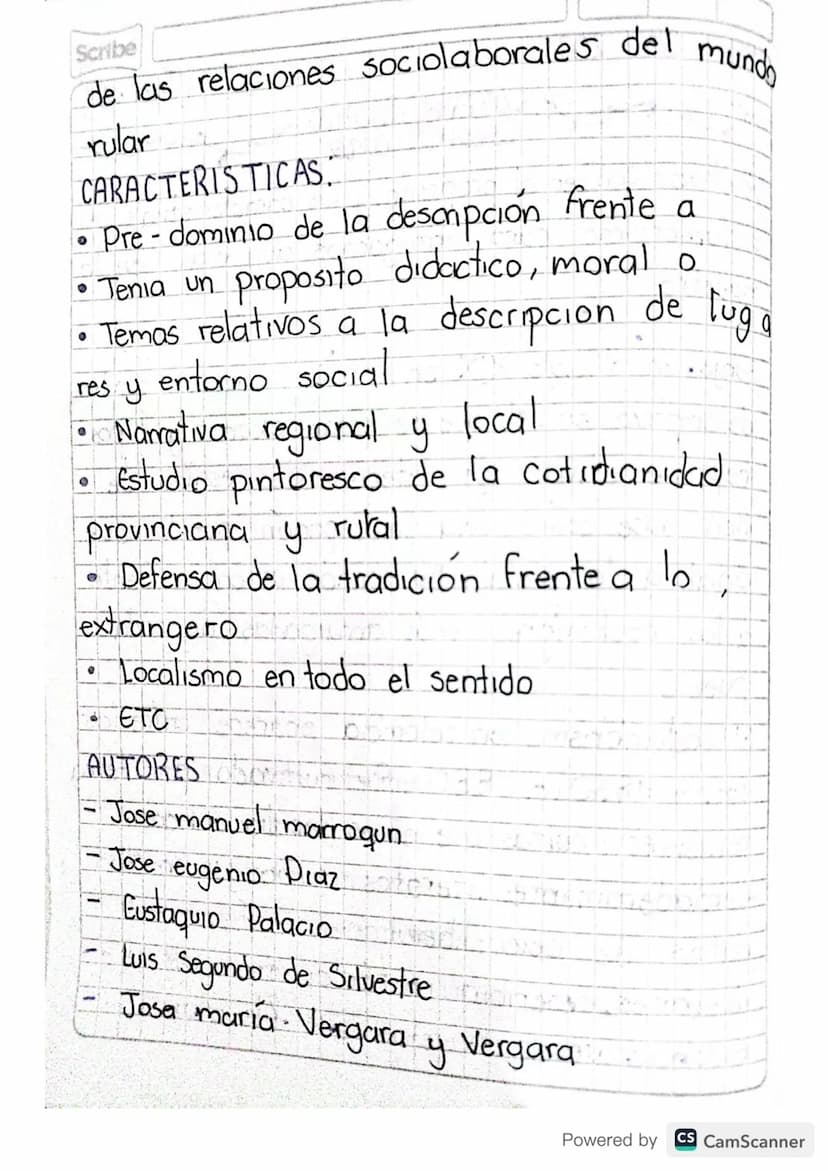 Scribe
de las relaciones sociolaborales del mundo
rular
CARACTERISTICAS:
• Pre-dominio de la descripción frente a
• Tenia un proposito didactico, moral o
• Temas relativos a la descripcion de luga
res y entorno social
• Narrativa regional y local
• Estudio pintoresco de la cotidianidad
provinciana y rural
• Defensa de la tradición frente a lo,
extrangero
• Localismo en todo el sentido
• ETC
AUTORES
- Jose manuel marroqun
- Jose eugenio Diaz
- Eustaquio Palacio
- Luis Segundo de Silvestre
- Jose maría Vergara y Vergara
Powered by CS CamScanner